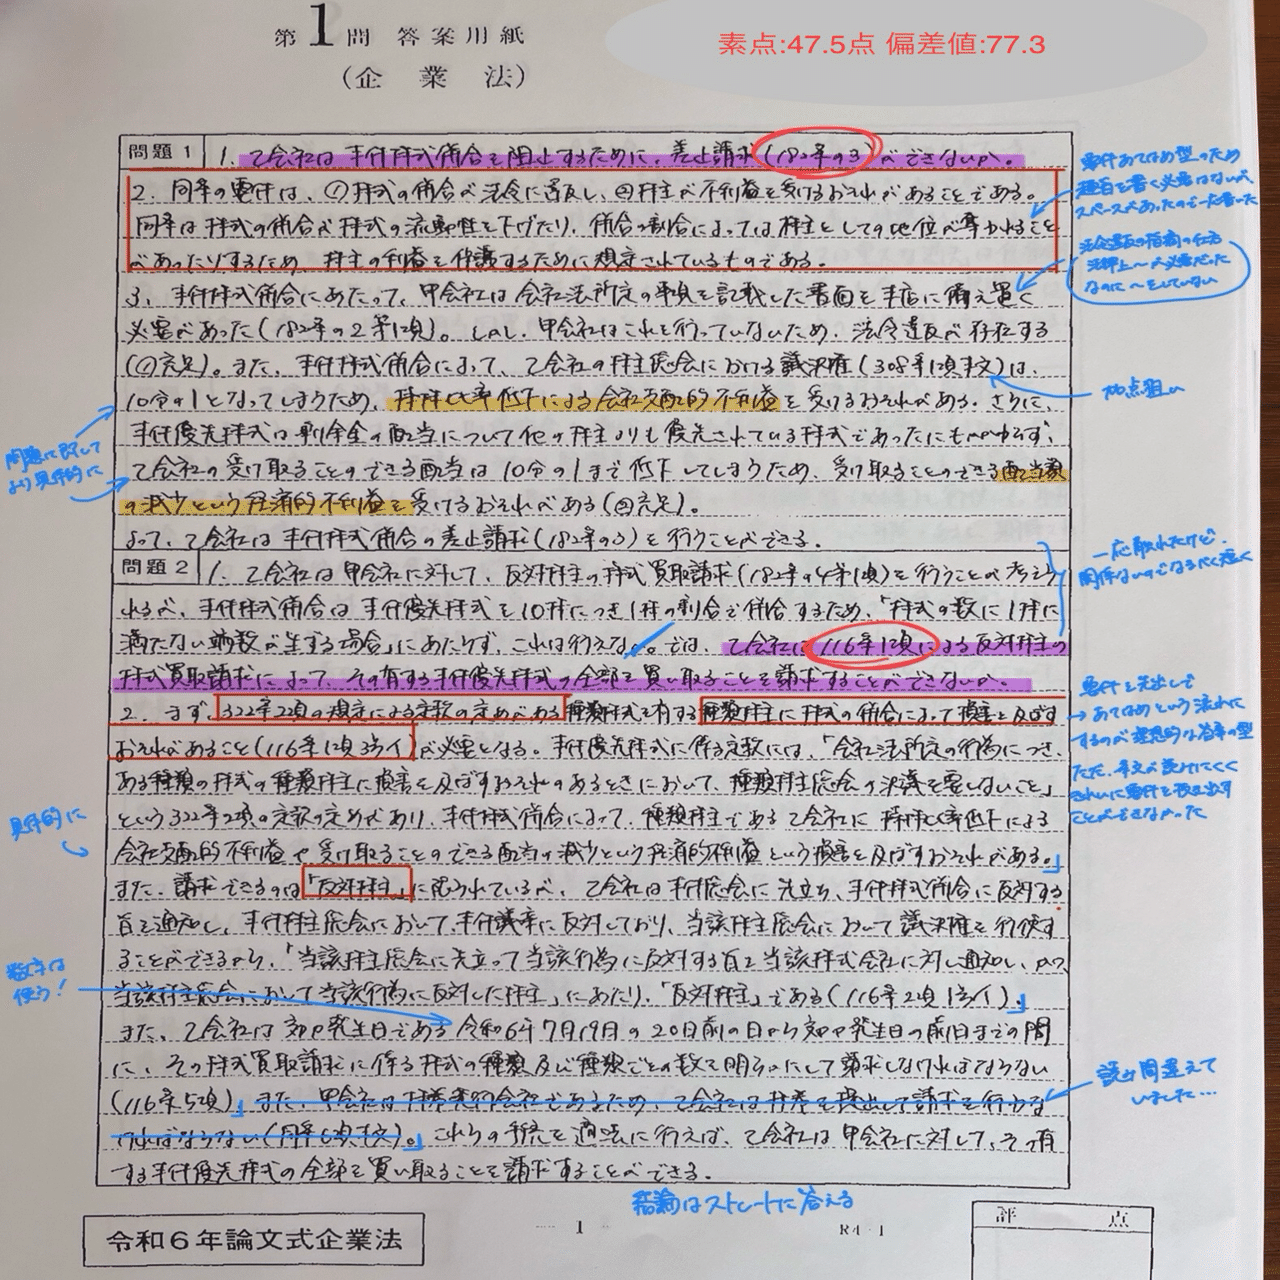 第1問 答案用紙
(企業法)
素点:47.5点 偏差値:77.3
問題1
1. 乙会社は本件株式併合を阻止するために、差止請求(182条の3)ができないか。
2. 同条の要件は、①株式の併合が法令に違反し、②株主が不利益を受けるおそれがあることである。
同条は株式の併合が株式の流動性を下げたり、併合の割合によっては株主としての地位が奪われること
があったりするため、株主の利益を保護するために規定されているものである。
3. 本件株式併合にあたって、甲会社は会社法所定の事項を記載した書面を本店に備え置く
必要があった(182条の2第1項)。しかし、甲会社はこれを行っていないため、法令違反が存在する
(①充足)。また、本件株式併合によって、乙会社の株主総会における議決権(308条1項本文)は、
10分の1となってしまうため、持株比率低下による会社支配的不利益を受けるおそれがある。さらに、
本件優先株式は剰余金の配当について他の株主よりも優先されている株式であったにもかかわらず、
乙会社の受け取ることのできる配当は10分の1まで低下してしまうため、受け取ることのできる配当額
の減少という経済的不利益を受けるおそれがある(②充足)。
よって、乙会社は本件株式併合の差止請求(182条の3)を行うことができる。
問題2
1. 乙会社は甲会社に対して、反対株主の株式買取請求(182条の4第1項)を行うことが考えら
れるが、本件株式併合は本件優先株式を10株につき1株の割合で併合するため、「株式の数に1株に
満たない端数が生ずる場合」にあたらず、これは行えない。では、乙会社は116条1項による反対株主の
株式買取請求によって、その有する本件優先株式の全部を買い取ることを請求することができないか。
2. まず、322条2項の規定による定款の定めがある種類株式を有する種類株主に株式の併合によって損害を及ぼす
おそれがあること(116条1項3号イ)が必要となる。本件優先株式に係る定款には、「会社法所定の行為につき、
ある種類の株式の種類株主に損害を及ぼすおそれのあるときにおいて、種類株主総会の決議を要しないこと」
という322条2項の定款の定めがあり、本件株式併合によって、種類株主である乙会社に持株比率低下による
会社支配的不利益や受け取ることのできる配当の減少という経済的不利益という損害を及ぼすおそれがある。」
また、請求できるのは「反対株主」に限られているが、乙会社は本件総会に先立ち、本件株式併合に反対する
旨を通知し、本件株主総会において、本件議案に反対しており、当該株主総会において議決権を行使す
ることができるから、「当該株主総会に先立って当該行為に反対する旨を当該株式会社に対し通知し、かつ、
当該株主総会において当該行為に反対した株主」にあたり、「反対株主」である(116条2項1号イ)。」
また、乙会社は効力発生日である令和6年7月19日の20日前の日から効力発生日の前日までの間
に、その株式買取請求に係る株式の種類及び種類ごとの数を明らかにして請求しなければならない
(116条5項)」また、甲会社は株券発行会社であるため、乙会社は株券を提出して請求を行わな
ければならない(同条6項本文)。」これらの手続を適法に行えば、乙会社は甲会社に対して、その有
する本件優先株式の全部を買い取ることを請求することができる。
要件あてはめ型のため
趣旨を書く必要はないが、
スペースがあったので一応書いた
法令違反の指摘の仕方
法律上~が必要だった
なのに~をしていない
加点狙い
問題に即して
より具体的に
一応触れたけど、
関係ないのでなるべく短く
要件を先出しで
→あてはめという流れに
するのが理想的な答案の型
ただ、条文が読みにくく
きれいに要件を抜き出す
ことができなかった
具体的に
数字は
使う!
読み間違えて
いました…
結論はストレートに答える
令和6年論文式企業法
1
R4-1
評点